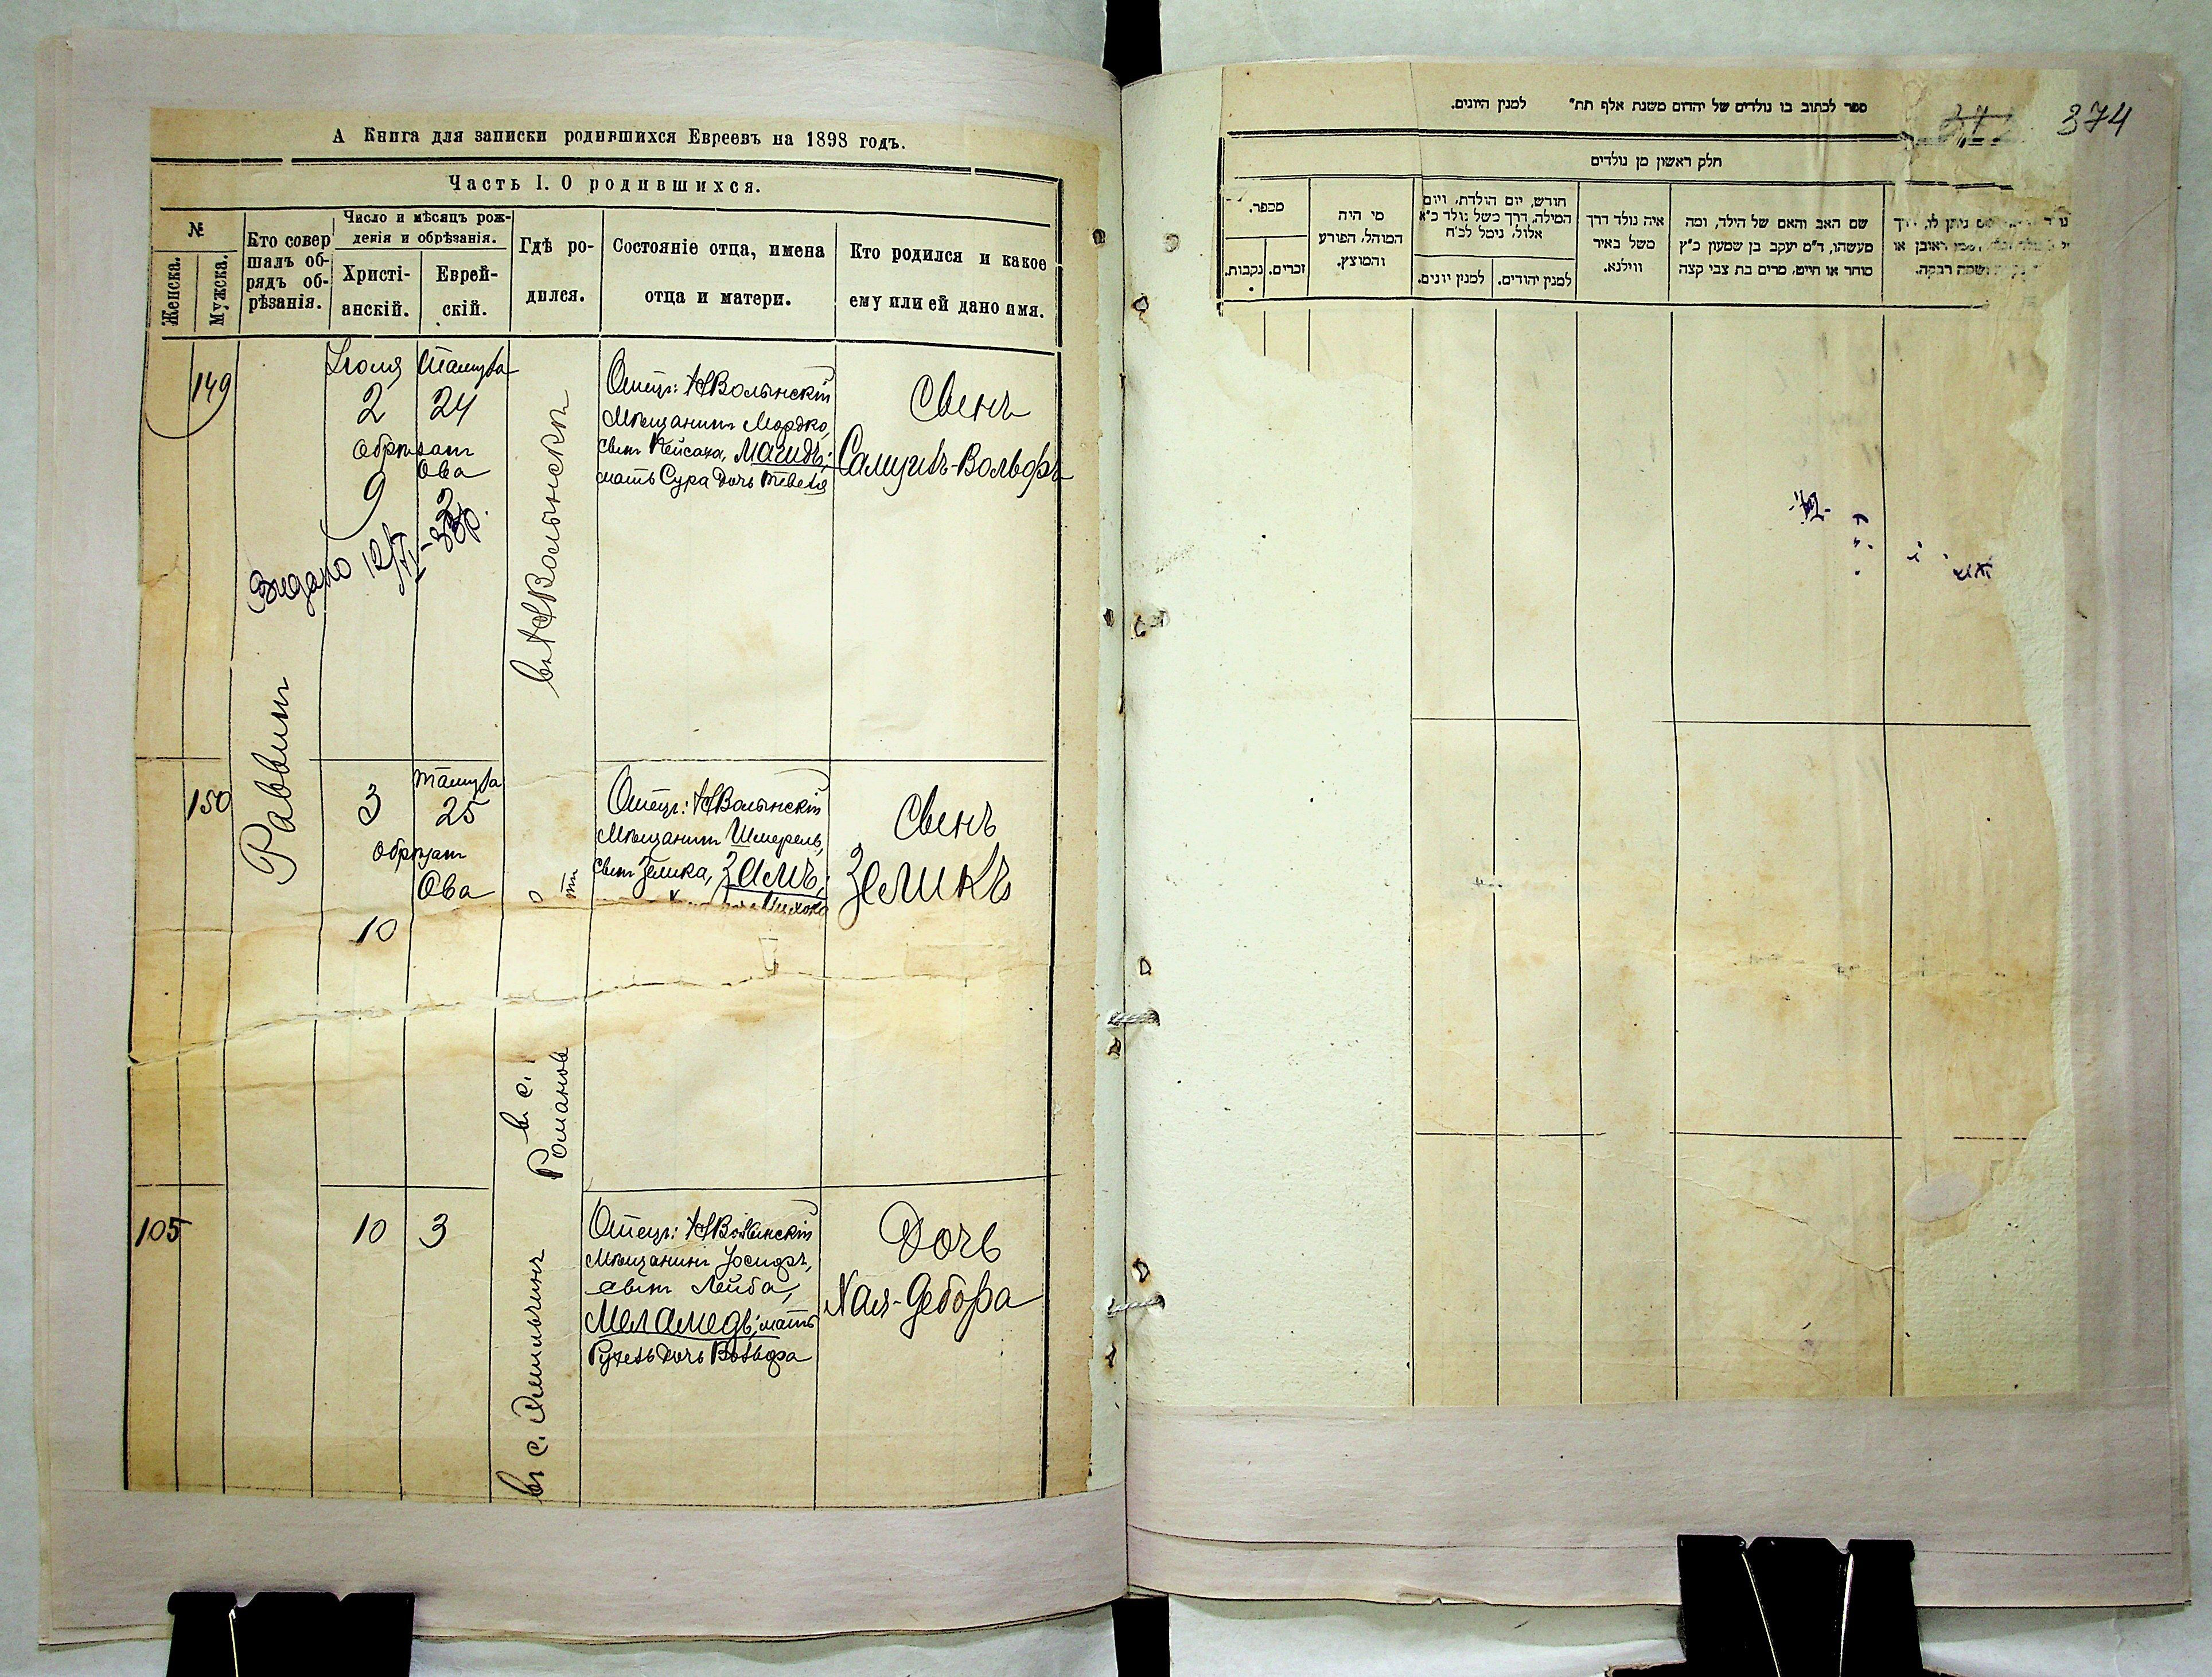 А Книга для записки родившихся Евреевъ на 1898 годъ.
Часть I. О родившихся.
№
Женска.
Мужска.
Кто совер
шалъ об-
рядъ об-
рѣзанія.
Число и мѣсяцъ рож-
денія и обрѣзанія.
Христі-
анскій.
Еврей-
скій.
Гдѣ ро-
дился.
Состояніе отца, имена
отца и матери.
Кто родился и какое
ему или ей дано имя.
149
Раввинъ
Іюля
2
Обрѣзанъ
9
Тамуза
24
Ова
2
Видано 12/VI-33р.
въ НВолынскѣ
Отецъ: НВолынскій
Мѣщанинъ Мордко,
сынъ Пейсаха, Магидъ;
мать Сура дочь Тевеля
Сынъ
Самуилъ-Вольфъ
150
3
Обрѣзанъ
10
Тамуза
25
Ова
въ с.
Романов
Отецъ: НВолынскій
Мѣщанинъ Шмерель,
сынъ Зелика,
Сынъ
Зеликъ
105
10
3
въ с. Эмильчинъ
Отецъ: НВолынскій
Мѣщанинъ Іосифъ,
сынъ Лейба,
Меламедъ; мать
Рухель дочь Вольфа
Дочь
Хая-Дебора
374
ספר לכתוב בו נולדים של יהדום משנת אלף תת״ למנין היונים.
חלק ראשון מן נולדים
מספר.
נקבות.
זכרים.
מי היה
המוהל, הפורע
והמוצץ.
חודש, יום הולדת, ויום
המילה, דרך משל נולד כ״א
אלול, נימל לכ״ח
למנין יונים.
למנין יהודים.
איה נולד דרך
משל באיר
ווילנא.
שם האב והאם של הילד, ומה
מעשהו, ד״מ יעקב בן שמעון כ״ץ
סוחר או חייט, מרים בת צבי קצה
ניתן לו,
ראובן או
ושמה רבקה.